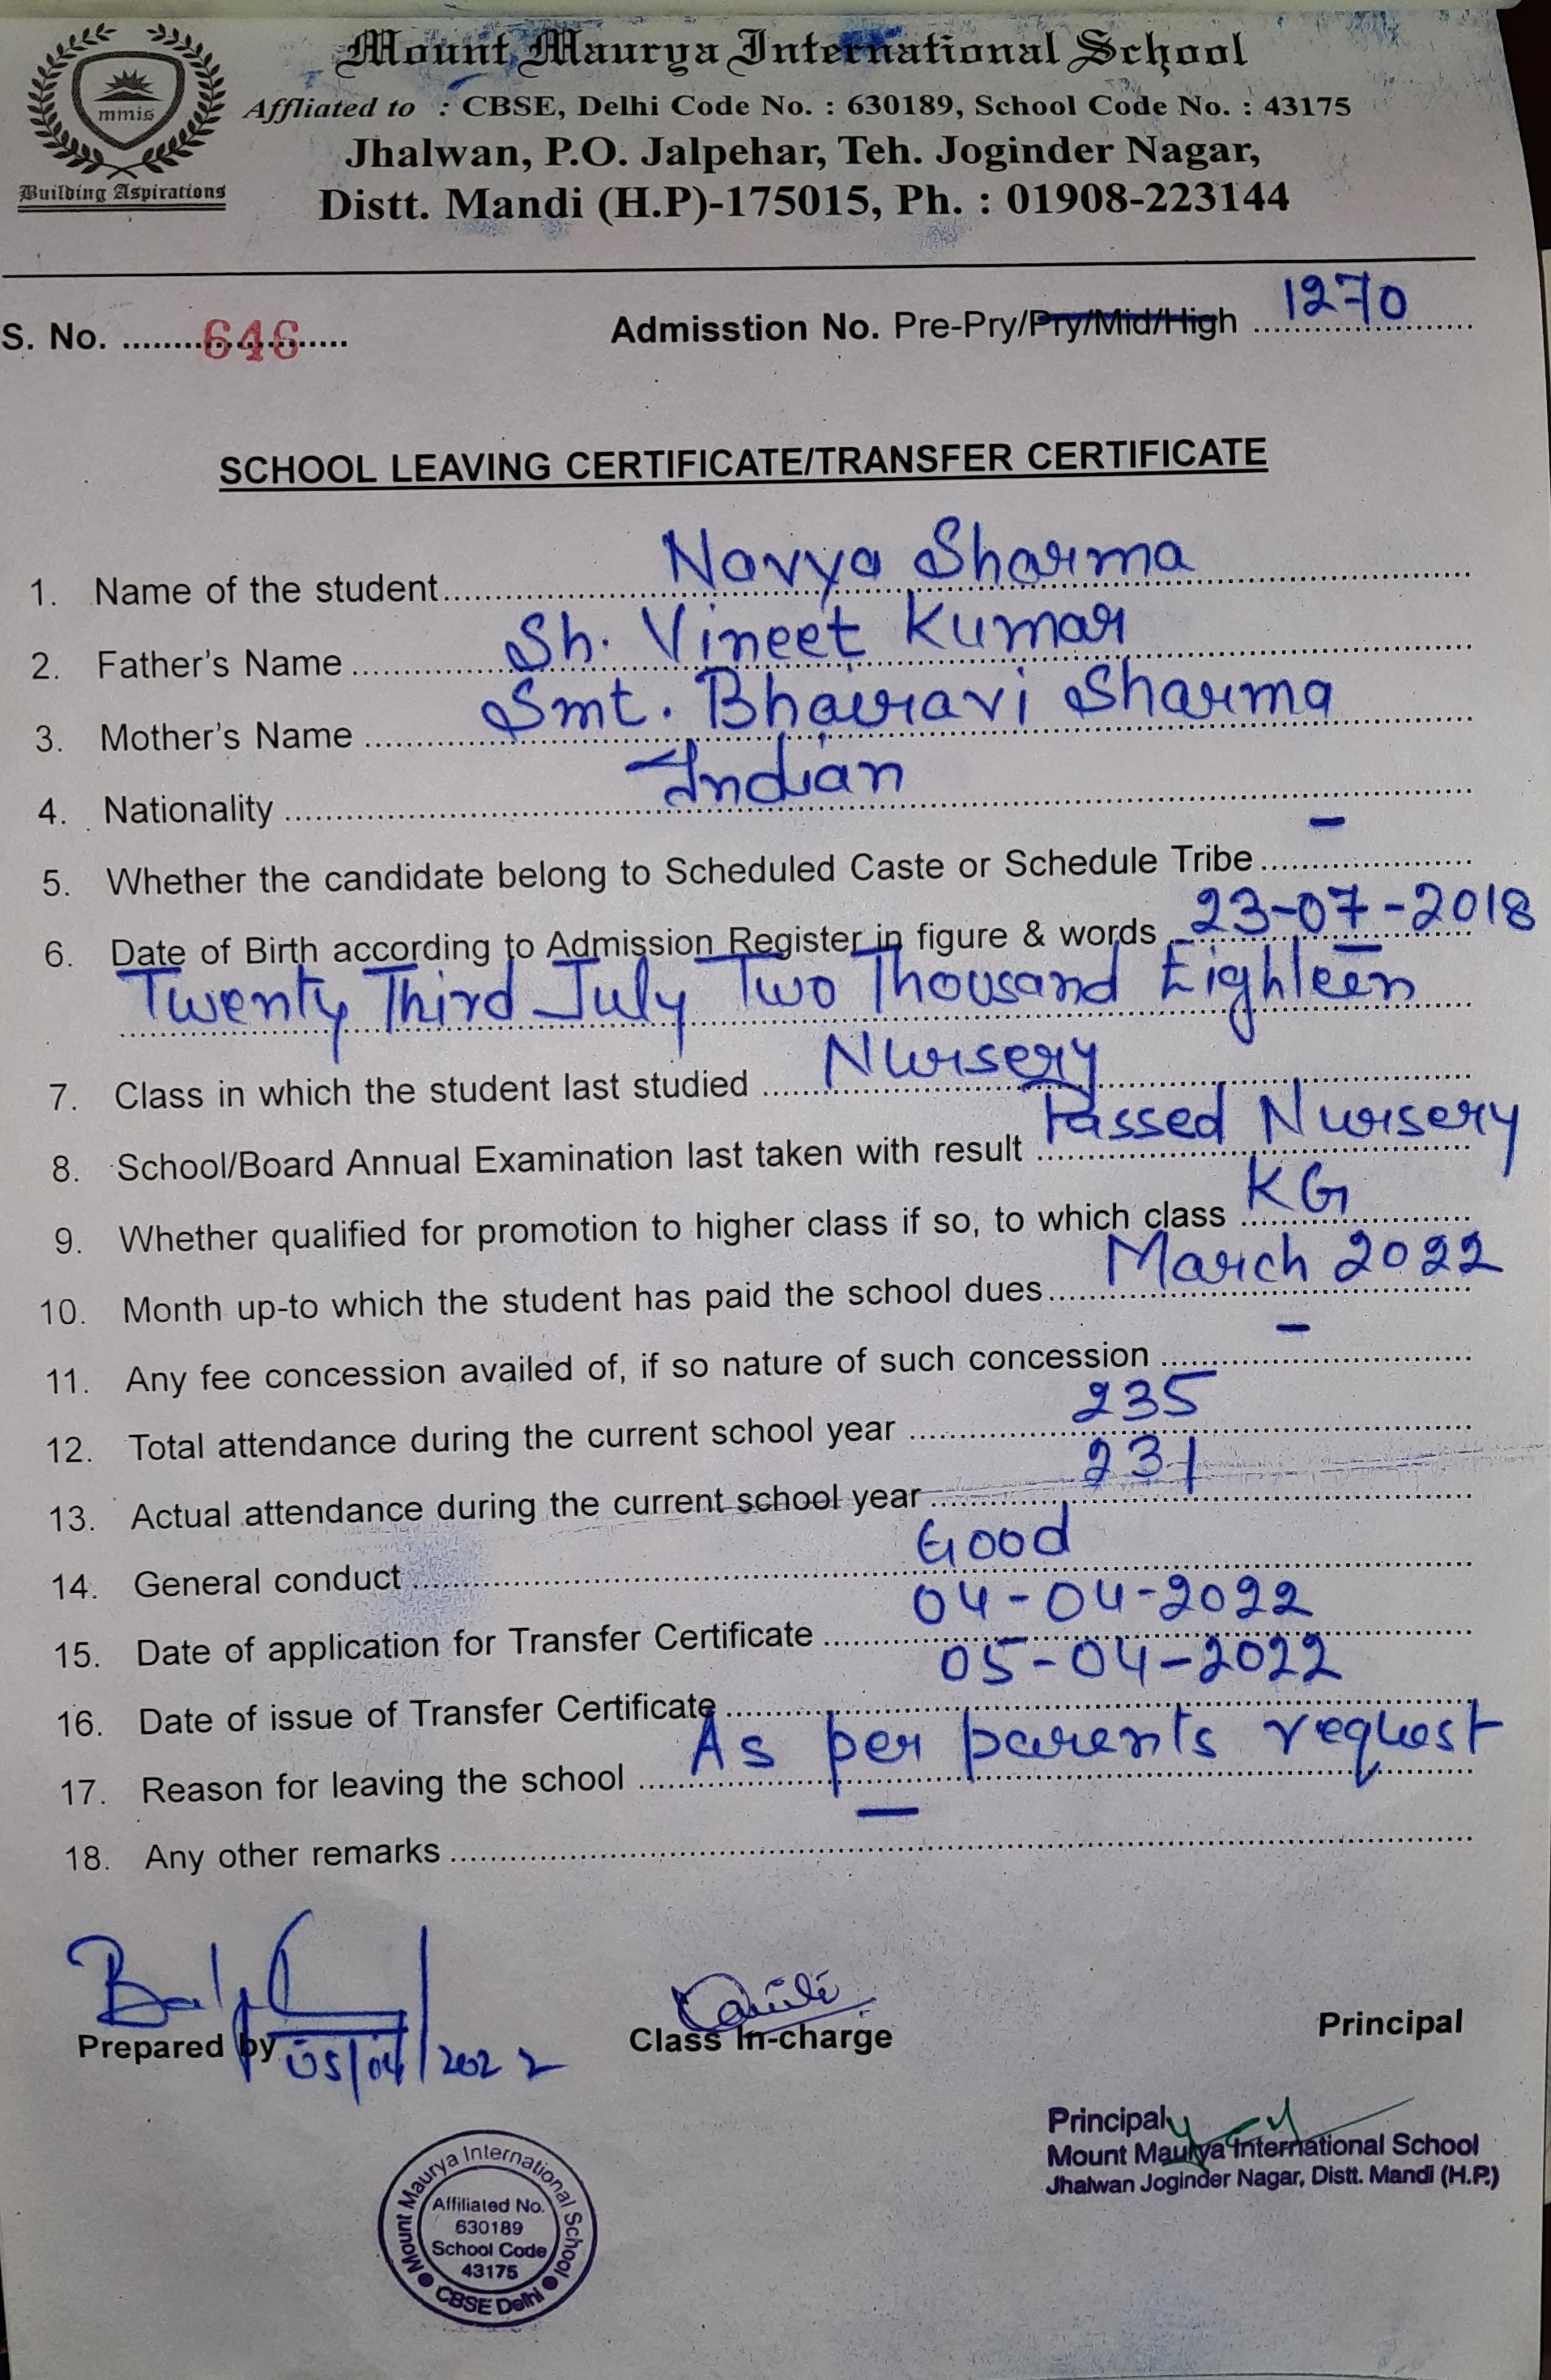 Mount Maurya International School
mmis
Building Aspirations
Affliated to : CBSE, Delhi Code No. : 630189, School Code No. : 43175
Jhalwan, P.O. Jalpehar, Teh. Joginder Nagar,
Distt. Mandi (H.P)-175015, Ph. : 01908-223144
S. No. 646
Admisstion No. Pre-Pry/Pry/Mid/High 1270
SCHOOL LEAVING CERTIFICATE/TRANSFER CERTIFICATE
1. Name of the student Navya Sharma
2. Father's Name Sh. Vineet Kumar
3. Mother's Name Smt. Bhairavi Sharma
4. Nationality Indian
5. Whether the candidate belong to Scheduled Caste or Schedule Tribe –
6. Date of Birth according to Admission Register in figure & words 23-07-2018
Twenty Third July Two Thousand Eighteen
7. Class in which the student last studied Nursery
8. School/Board Annual Examination last taken with result Passed Nursery
9. Whether qualified for promotion to higher class if so, to which class KG
10. Month up-to which the student has paid the school dues March 2022
11. Any fee concession availed of, if so nature of such concession –
12. Total attendance during the current school year 235
13. Actual attendance during the current school year 231
14. General conduct Good
15. Date of application for Transfer Certificate 04-04-2022
16. Date of issue of Transfer Certificate 05-04-2022
17. Reason for leaving the school As per parents request
18. Any other remarks –
Prepared by 05/04/2022
Class In-charge
Principal
Principal
Mount Maurya International School
Jhalwan Joginder Nagar, Distt. Mandi (H.P.)
Mount Maurya International School
Affiliated No.
630189
School Code
43175
CBSE Delhi